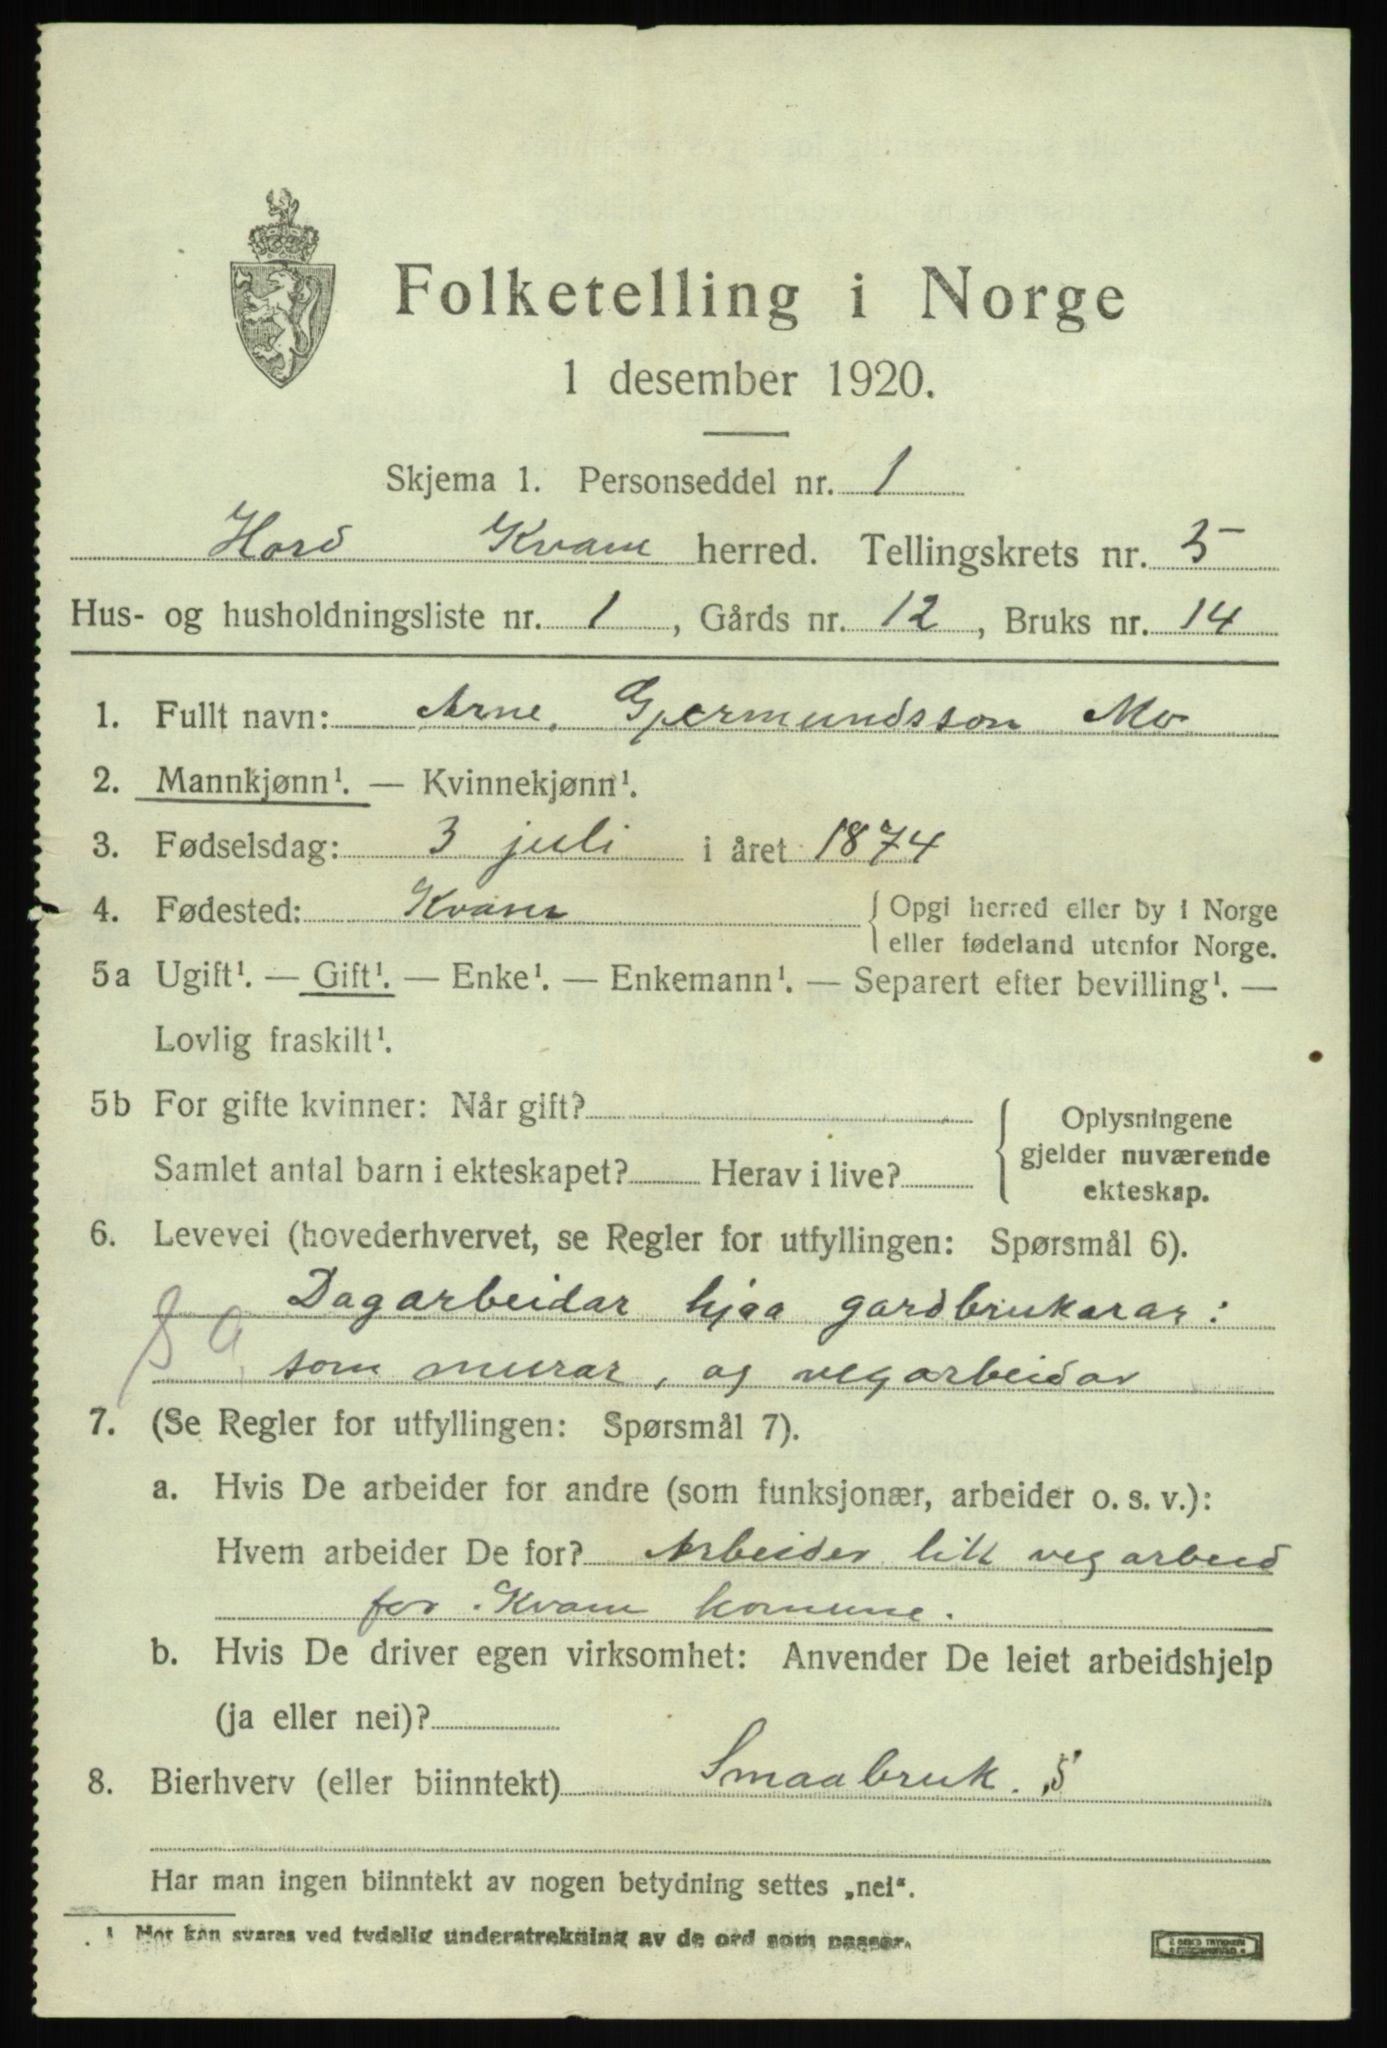 Folketelling i Norge
1 desember 1920.
Skjema 1. Personseddel nr. 1
Hord Kvam herred. Tellingskrets nr. 5
Hus- og husholdningsliste nr. 1, Gårds nr. 12, Bruks nr. 14
1. Fullt navn: Arne. Gjermundsson Mo
2. Mannkjønn¹. — Kvinnekjønn¹.
3. Fødselsdag: 3 juli i året 1874
4. Fødested: Kvam { Opgi herred eller by i Norge
eller fødeland utenfor Norge.
5a Ugift¹. — Gift¹. — Enke¹. — Enkemann¹. — Separert efter bevilling¹. —
Lovlig fraskilt¹.
5b For gifte kvinner: Når gift?
Samlet antal barn i ekteskapet? Herav i live?
{ Oplysningene
gjelder nuværende
ekteskap.
6. Levevei (hovederhvervet, se Regler for utfyllingen: Spørsmål 6).
Dagarbeidar hjaa gardbrukarar:
som murar, og vegarbeidar
7. (Se Regler for utfyllingen: Spørsmål 7).
a. Hvis De arbeider for andre (som funksjonær, arbeider o. s. v.):
Hvem arbeider De for? Arbeider litt vegarbeid
for Kvam komune.
b. Hvis De driver egen virksomhet: Anvender De leiet arbeidshjelp
(ja eller nei)?
8. Bierhverv (eller biinntekt) Smaabruk. S
Har man ingen biinntekt av nogen betydning settes „nei“.
¹ Her kan svares ved tydelig understrekning av de ord som passer.